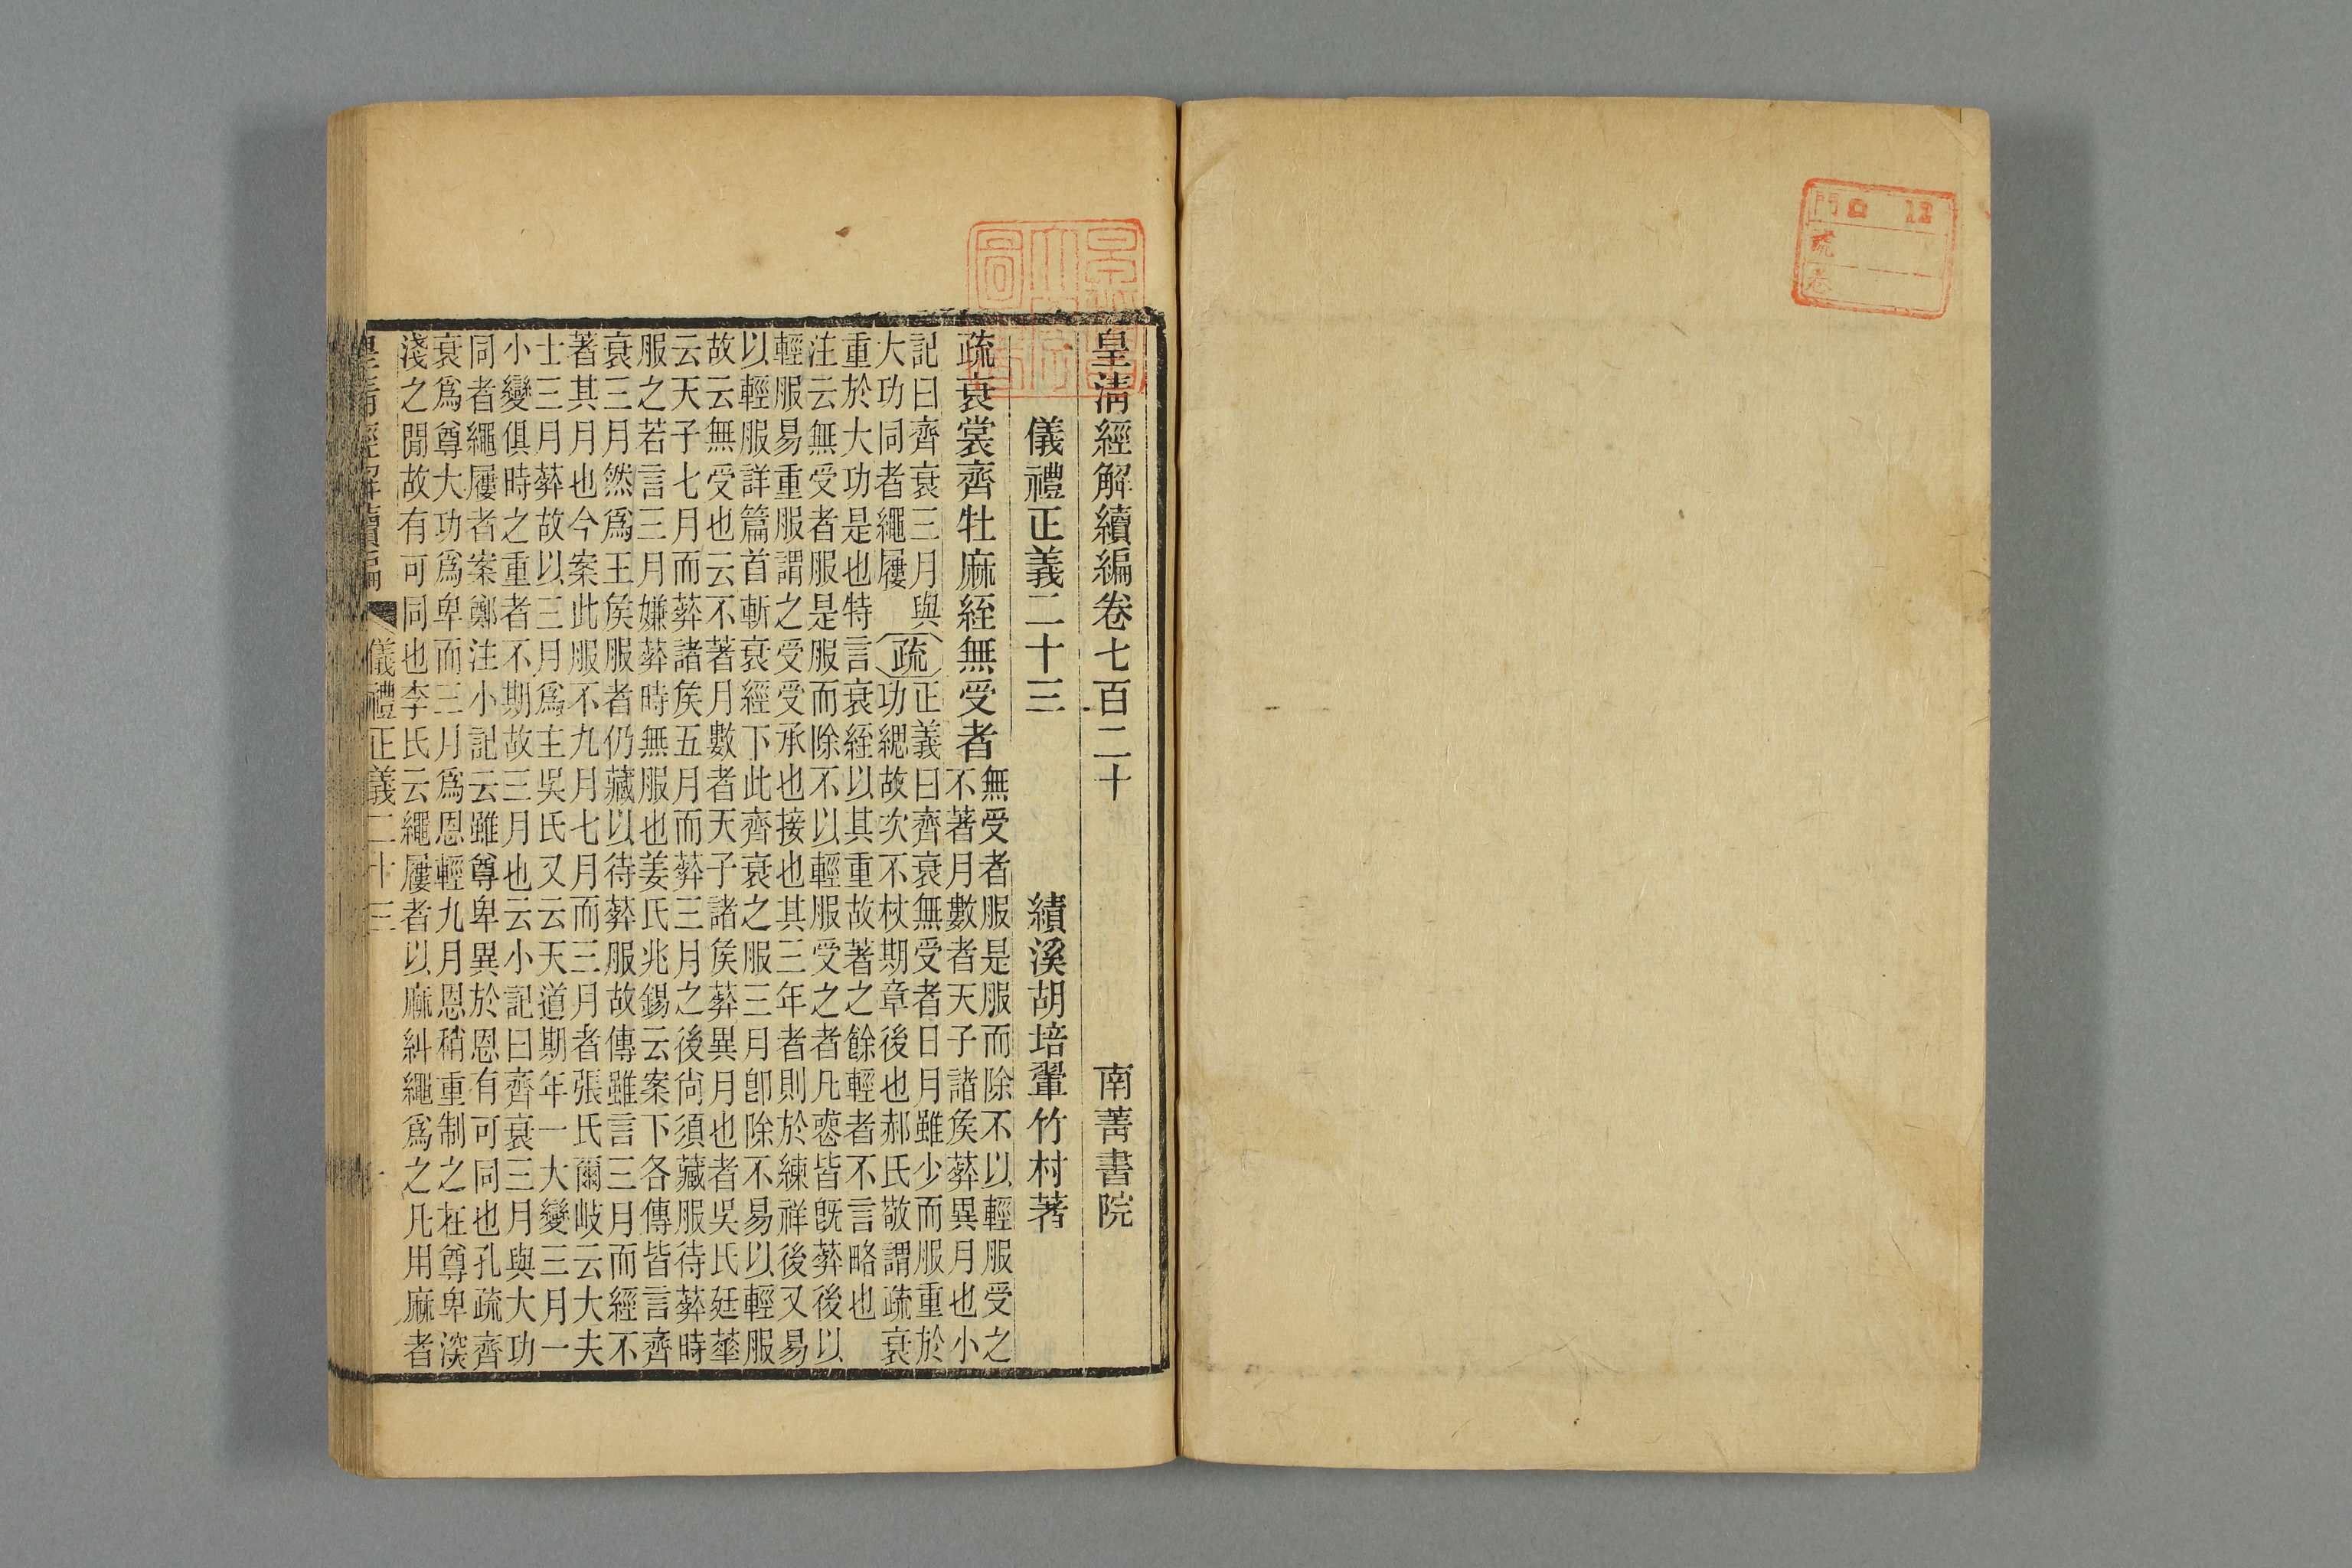 門 12
號
卷
皇清經解續編卷七百二十 南菁書院
儀禮正義二十三 績溪胡培翬竹村著
疏衰裳齊牡麻絰無受者
無受者服是服而除不以輕服受之
不著月數者天子諸矦葬異月也小
記曰齊衰三月與
大功同者繩屨
疏
正義曰齊衰無受者日月雖少而服重於
功緦故次不杖期章後也郝氏敬謂疏衰
重於大功是也特言衰絰以其重故著之餘輕者不言略也
注云無受者服是服而除不以輕服受之者凡喪皆旣葬後以
輕服易重服謂之受受承也接也其三年者則於練祥後又易
以輕服詳篇首斬衰經下此齊衰之服三月卽除不易以輕服
故云無受也云不著月數者天子諸矦葬異月也者吳氏廷華
云天子七月而葬諸矦五月而葬三月之後尙須藏服待葬時
服之若言三月嫌葬時無服也姜氏兆錫云案下各傳皆言齊
衰三月然爲王矦服者仍藏以待葬服故傳雖言三月而經不
著其月也今案此服不九月七月而三月者張氏爾岐云大夫
士三月葬故以三月爲主吳氏又云天道期年一大變三月一
小變俱時之重者不期故三月也云小記曰齊衰三月與大功
同者繩屨者案鄭注小記云雖尊卑異於恩有可同也孔疏齊
衰爲尊大功爲卑而三月爲恩輕九月恩稍重制之在尊卑深
淺之閒故有可同也李氏云繩屨者以麻糾繩爲之凡用麻者
皇清經解續編 儀禮正義二十三 一